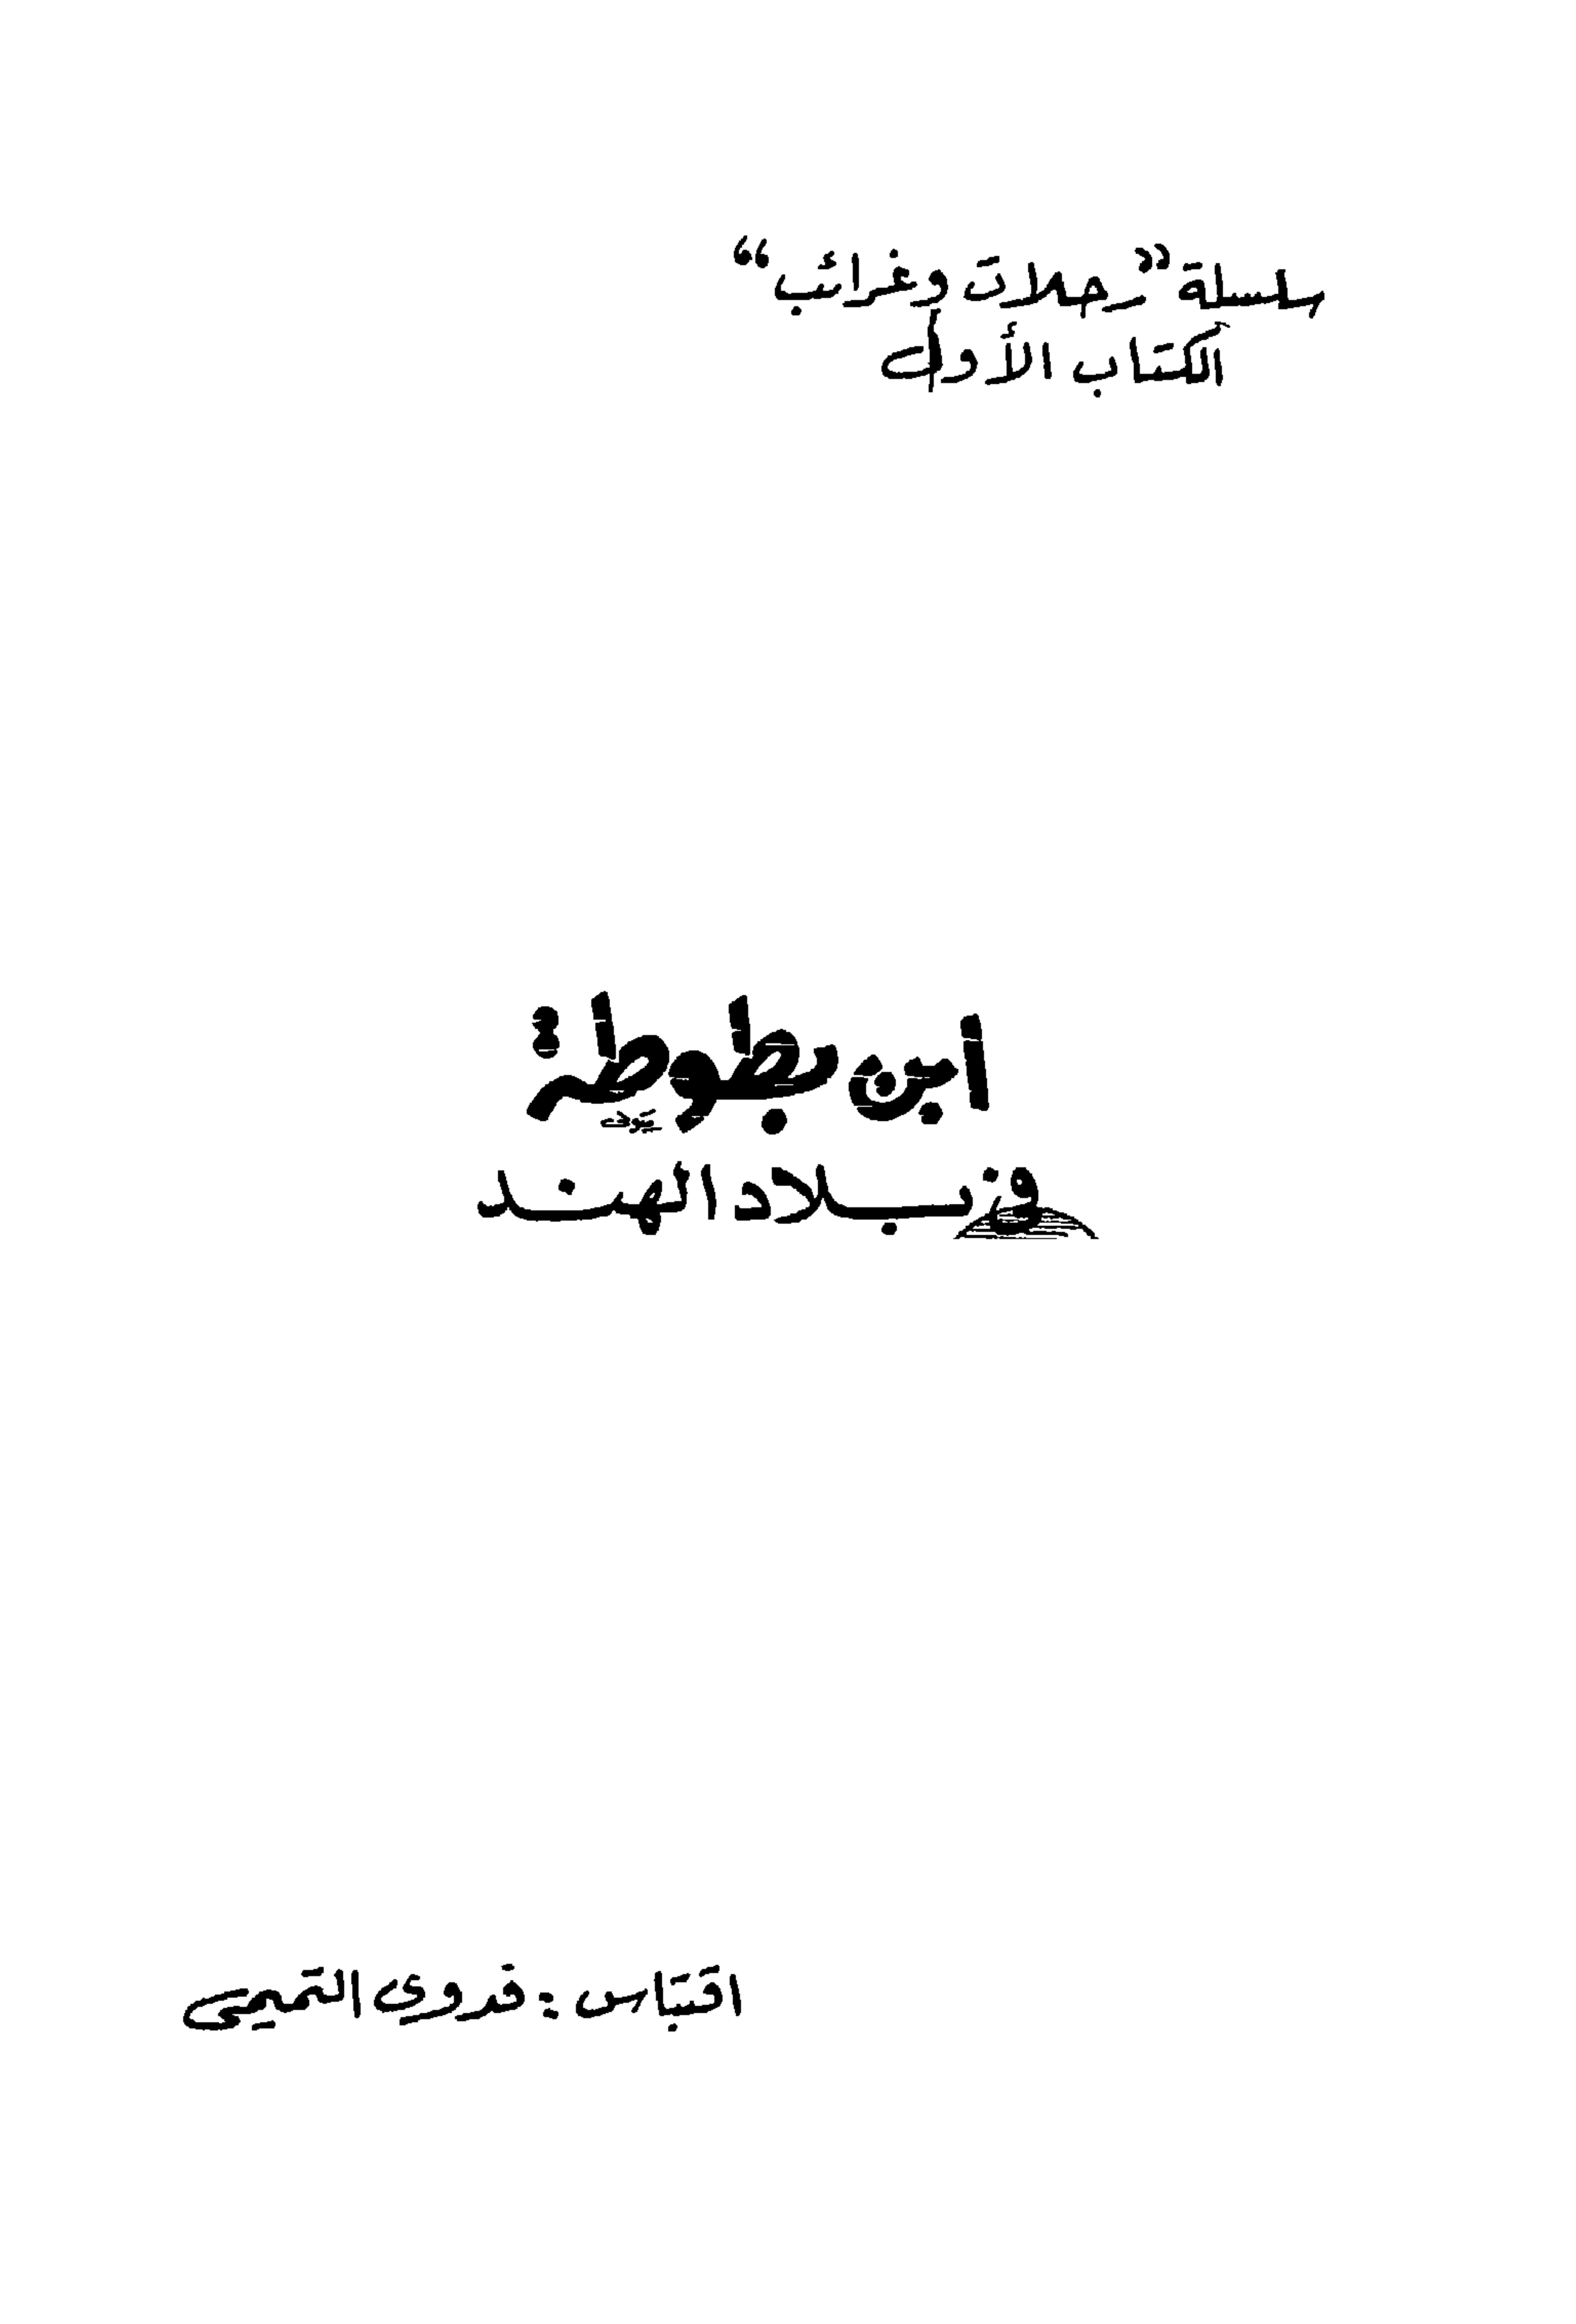 سلسلة "رحلات وغرائب"
الكتاب الأول
ابن بطوطة
في بلاد الهند
اقتباس: فدوى